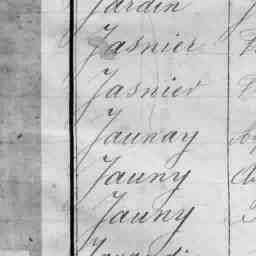 Jardin
Jasnier
Jasnier
Jaunay
Jauny
Jauny